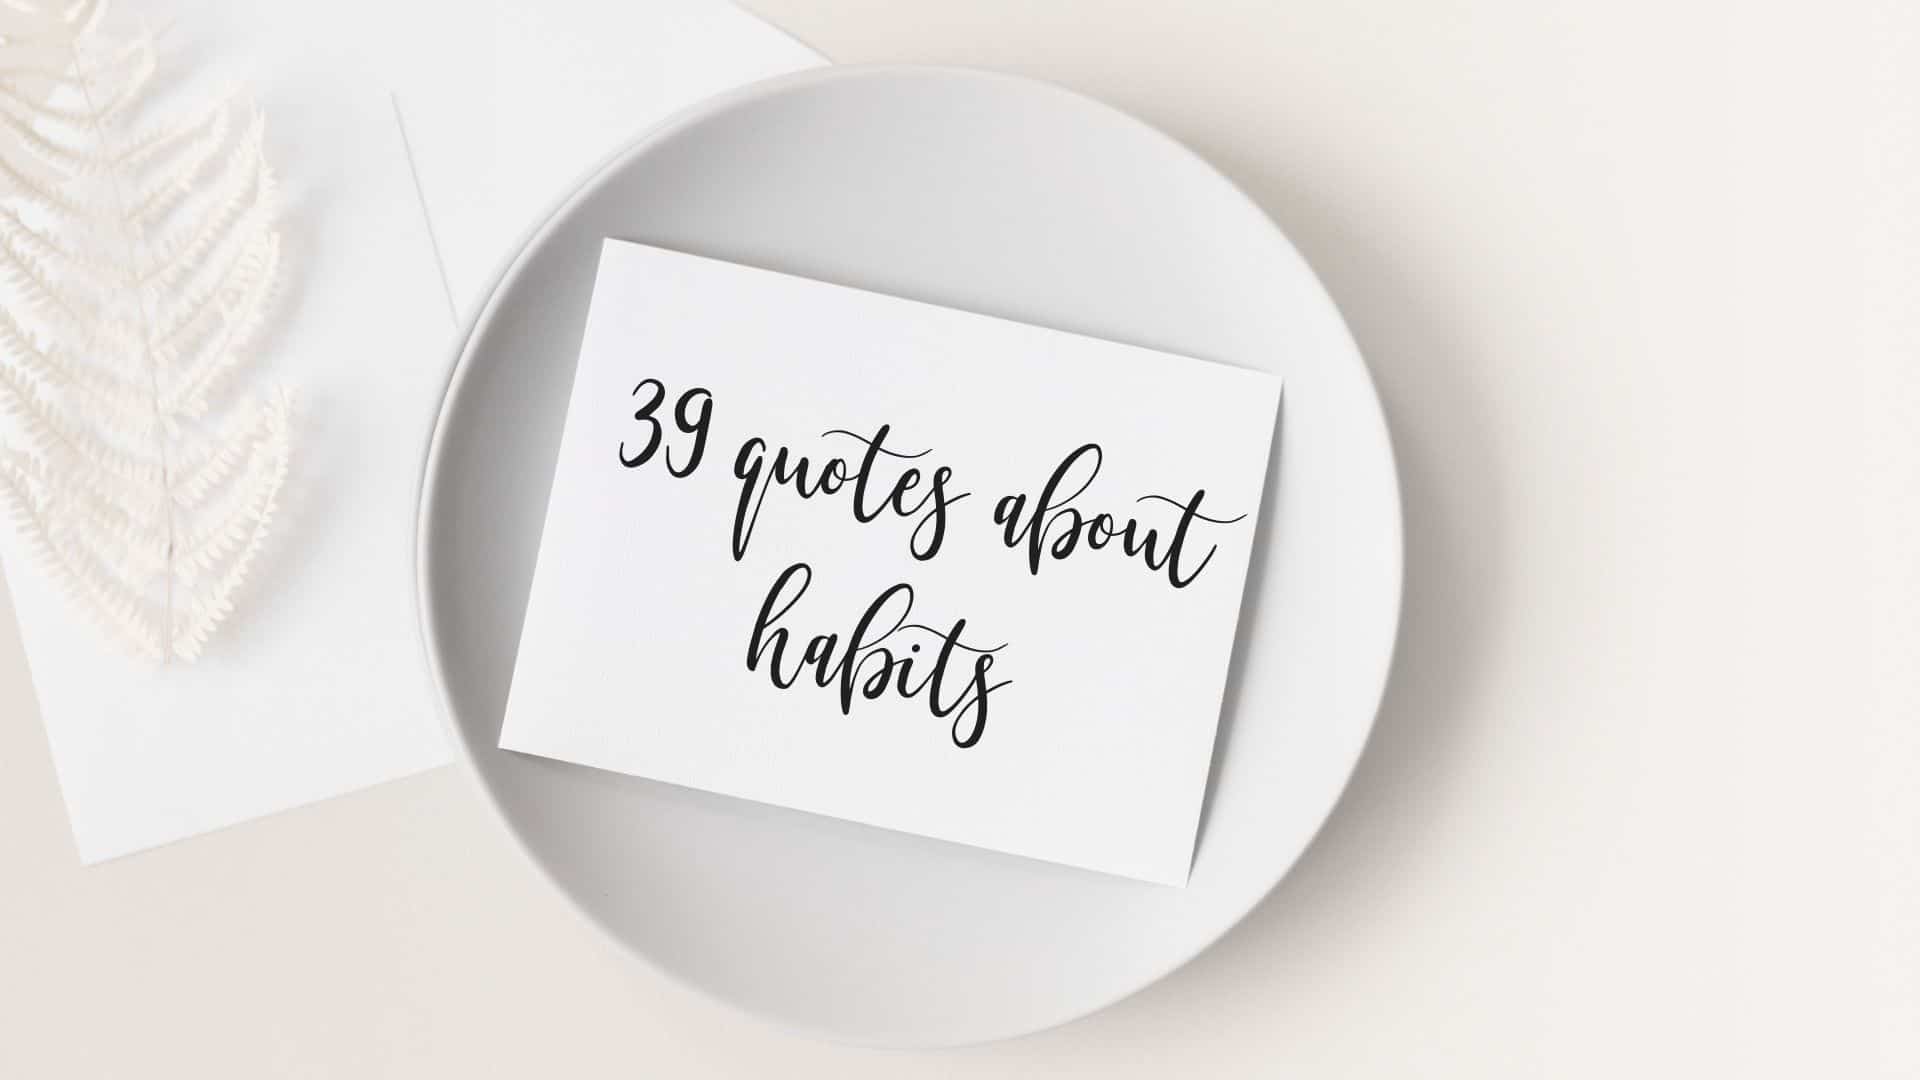 39 quotes about
habits